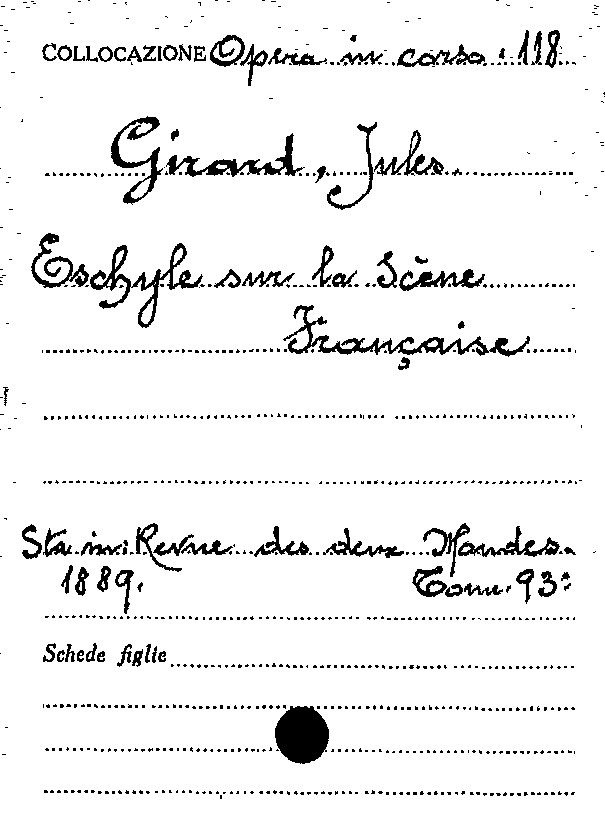 COLLOCAZIONE Opera in corso . 118
Girard, Jules.
Eschyle sur la Scène
Française
Sta in: Revue des deux Mondes.
1889. Tom. 93º
Schede figlie